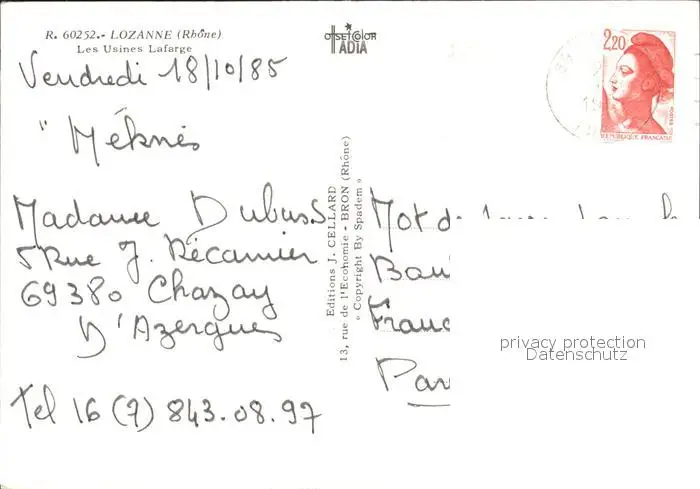 R. 60252.- LOZANNE (Rhône)
Les Usines Lafarge
OFFSET COLOR
IADIA
Vendredi 18/10/85
" Méknès
Madame Dubuss
5 Rue J. Récamier
69380 Chazay
D'Azergues
Tel 16 (7) 843.08.97
Editions J. CELLARD
13, rue de l'Economie - BRON (Rhône)
« Copyright By Spadem »
2,20
REPUBLIQUE FRANÇAISE
Mot d
Bau
Franc
Par
privacy protection
Datenschutz